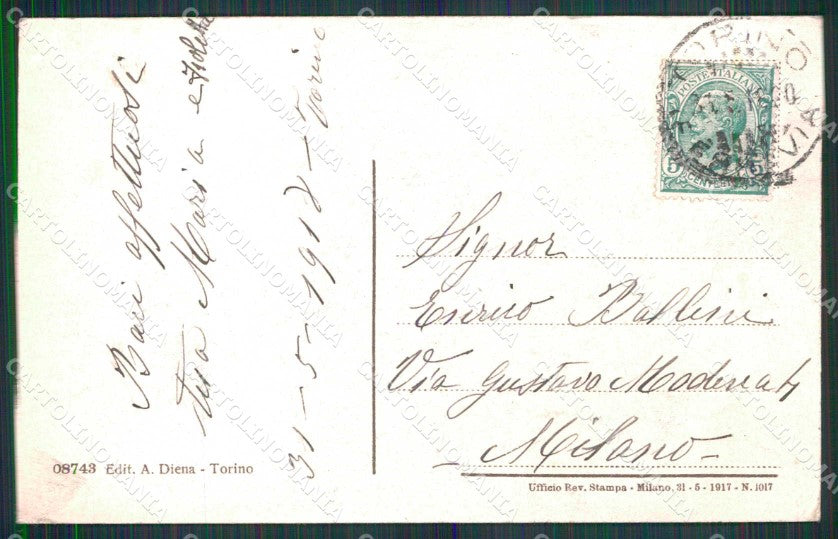 Baci affettuosi
tua Maria e Iolita
31-5-1918 - Torino
08743 Edit. A. Diena - Torino
POSTE ITALIANE
Signor
Enrico Ballini
Via Gustavo Modena 4
- Milano -
Ufficio Rev. Stampa - Milano, 31 - 5 - 1917 - N. 1017
CARTOLINOMANIA